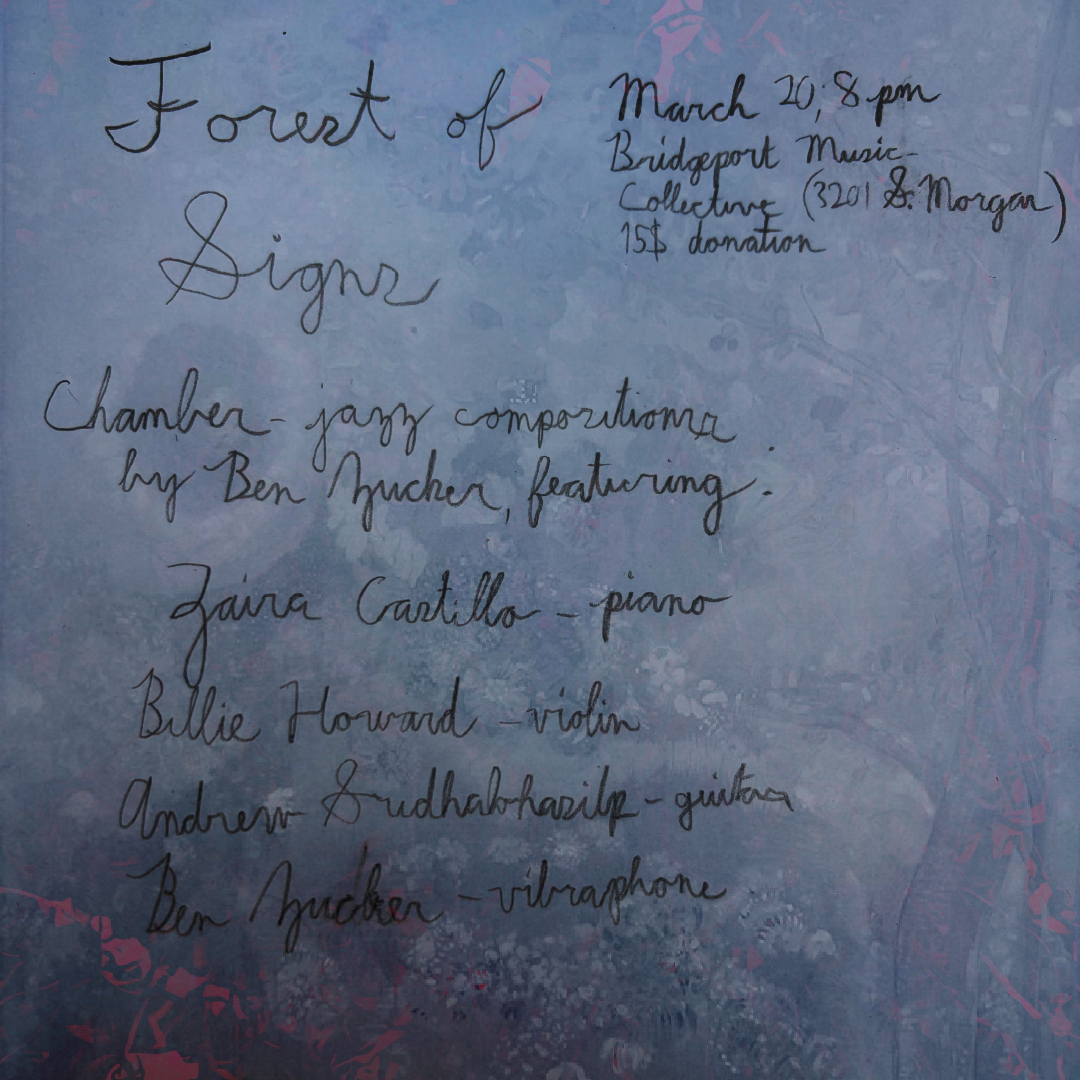 Forest of
Signs
March 20, 8 pm
Bridgeport Music
Collective (3201 S. Morgan)
15$ donation
Chamber-jazz compositions
by Ben Zucker, featuring:
Zaira Castillo - piano
Billie Howard - violin
Andrew Sudhabhasilp - guitar
Ben Zucker - vibraphone